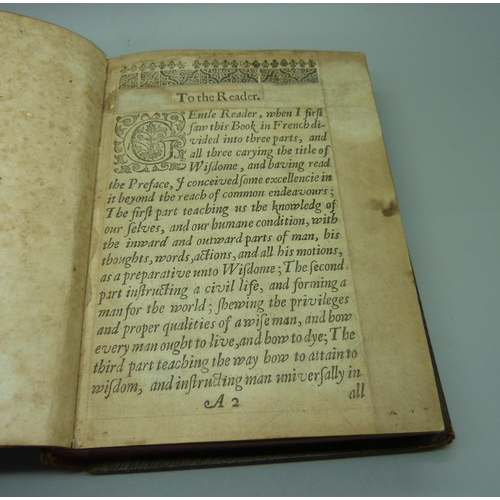 To the Reader.
GEntle Reader, when I first
saw this Book in French di-
vided into three parts, and
all three carying the title of
Wisdome, and having read
the Preface, I conceived some excellencie in
it beyond the reach of common endeavours;
The first part teaching us the knowledg of
our selves, and our humane condition, with
the inward and outward parts of man, his
thoughts, words, actions, and all his motions,
as a preparative unto Wisdome; The second
part instructing a civil life, and forming a
man for the world; shewing the privileges
and proper qualities of a wise man, and how
every man ought to live, and how to dye; The
third part teaching the way how to attain to
wisdom, and instructing man universally in
A 2
all